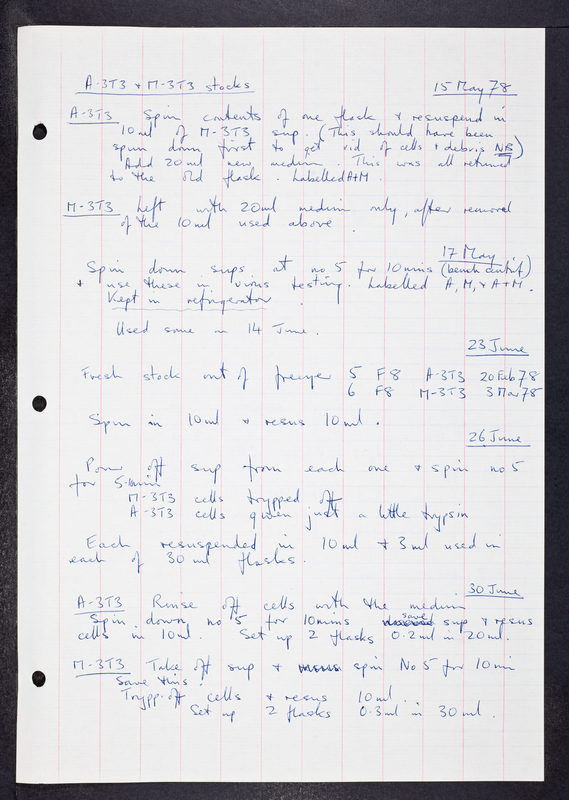 A-3T3 & M-3T3 stocks 15 May 78
A-3T3 Spin contents of one flask & resuspend in
10 ml of M-3T3 sup. (This should have been
spun down first to get rid of cells & debris NB)
Add 20 ml new medium. This was all returned
to the old flask. Labelled A+M.
M-3T3 Left with 20ml medium only, after removal
of the 10 ml used above.
17 May
Spin down sups at no 5 for 10 mins (bench centrif)
& use these in virus testing. Labelled A, M, & A+M.
Kept in refrigerator.
Used some on 14 June.
23 June
Fresh stock out of freezer 5 F8 A-3T3 20 Feb 78
6 F8 M-3T3 3 Mar 78
Spin in 10 ml & resus 10 ml.
26 June
Pour off sup from each one & spin no 5
for 5 min
M-3T3 cells trypped off
A-3T3 cells given just a little trypsin
Each resuspended in 10 ml & 3 ml used in
each of 30 ml flasks.
30 June
A-3T3 Rinse off cells with the medium
Spin down no 5 for 10 mins save sup & resus
cells in 10 ml. Set up 2 flasks 0.2 ml in 20 ml.
M-3T3 Take off sup & spin No 5 for 10 min
Save this.
Trypp. off cells & resus 10 ml.
Set up 2 flasks 0.3 ml in 30 ml.